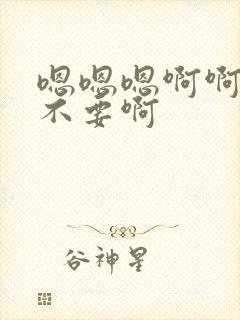 嗯嗯嗯啊啊
不要啊
谷神星